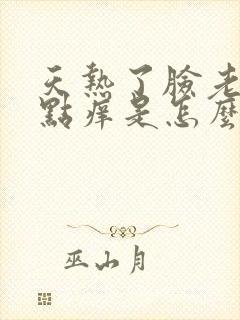 天熱了臉老
點痒是怎麼
巫山月